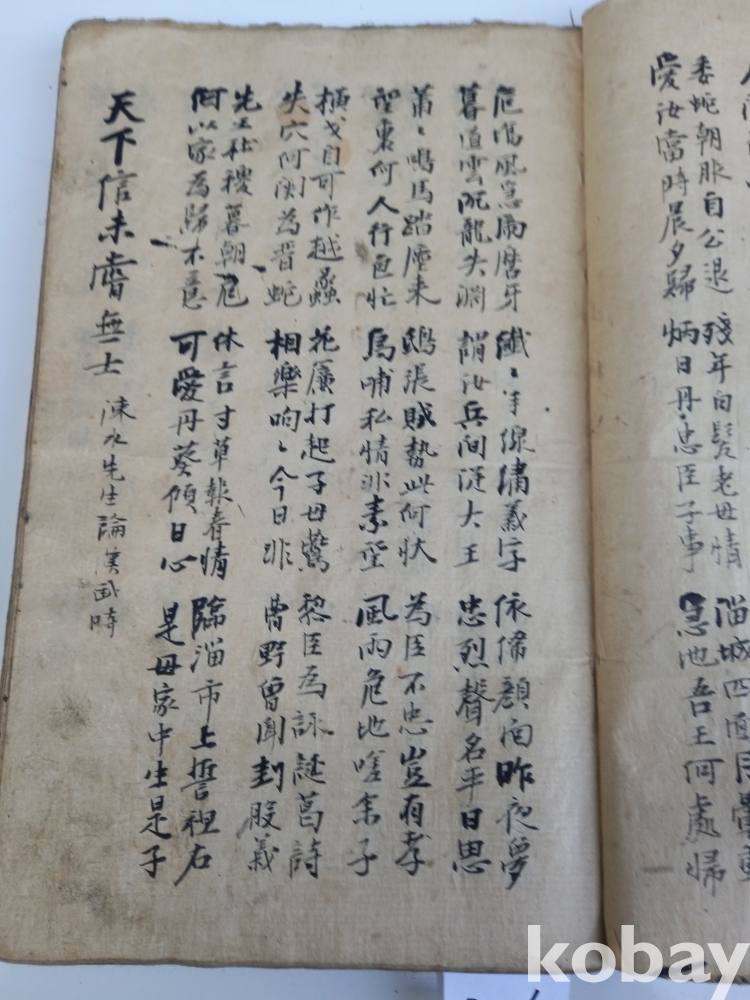 委蛇朝服自公退
愛汝當時晨夕歸
殘年白髮老母情
炳日丹忠臣子事
淄城四面月暈重
急也吾王何處歸
危傷風急雨磨牙
暮道雲昏龍失淵
纖〻手線繡義字
謂汝兵間從大王
依俙顔面昨夜夢
忠烈聲名平日思
蕭〻鳴馬踏塵來
望裏何人行色忙
鴟張賊勢此何狀
烏哺私情非素望
為臣不忠豈有孝
風雨危地嗟余子
橫戈自可作越蠡
失穴何関為晋蛇
花打起子母鶯
相樂响〻今日非
黎臣為詠誕葛詩
曹野曾聞刲股義
先王社稷暮朝危
何以家為歸不意
休言寸草報春情
可愛丹葵傾日心
臨淄市上誓袒右
是母家中生是子
天下信未嘗無士 涑水先生論漢武時
kobay